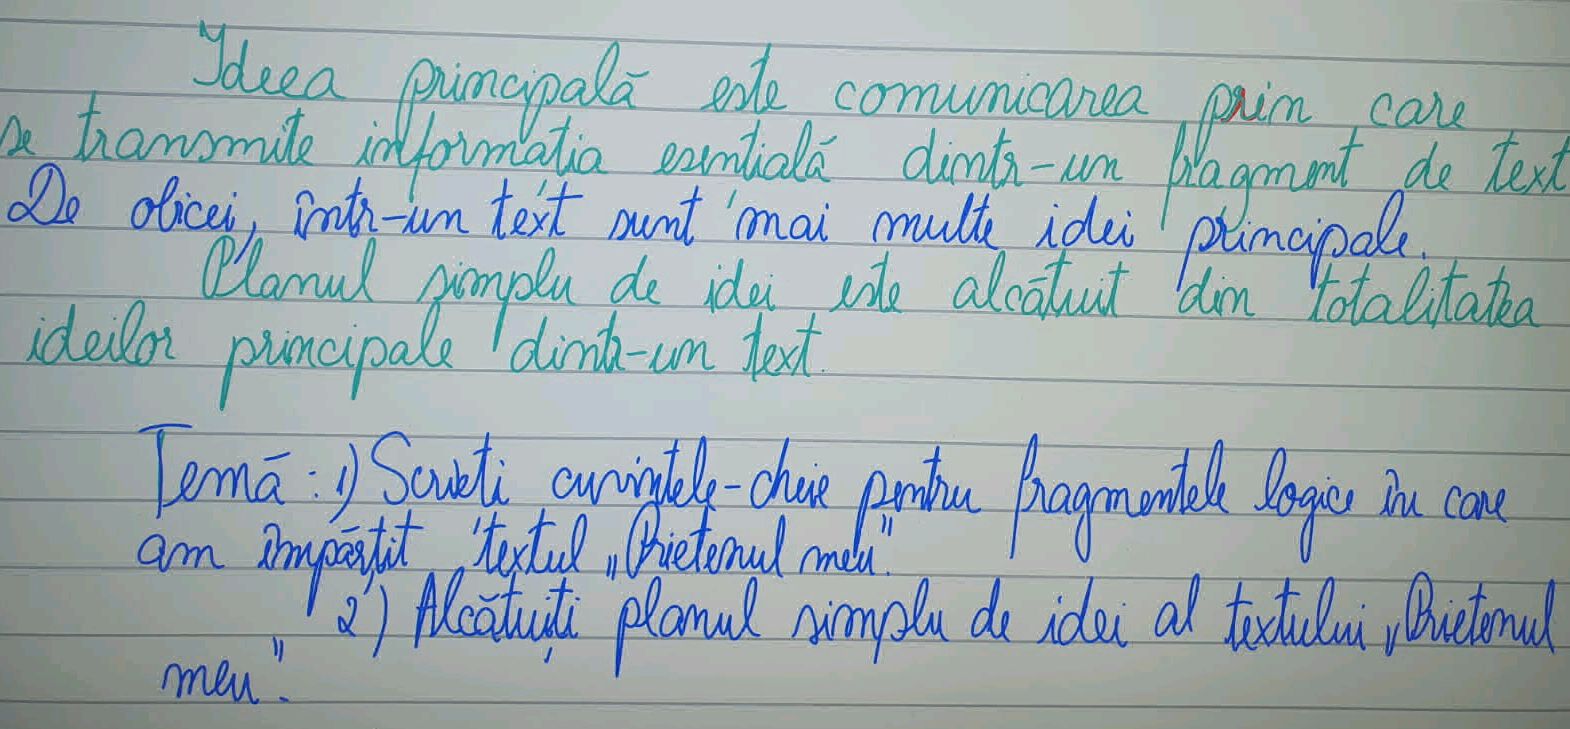 Ideea principală este comunicarea prin care
se transmite informatia esentială dintr-un fragment de text
De obicei, într-un text sunt mai multe idei principale.
Planul simplu de idei este alcătuit din totalitatea
ideilor principale dintr-un text.
Temă: 1) Scrieti cuvintele-cheie pentru fragmentele logice în care
am împărțit textul „Prietenul meu".
2) Alcătuiți planul simplu de idei al textului „Prietenul
meu".